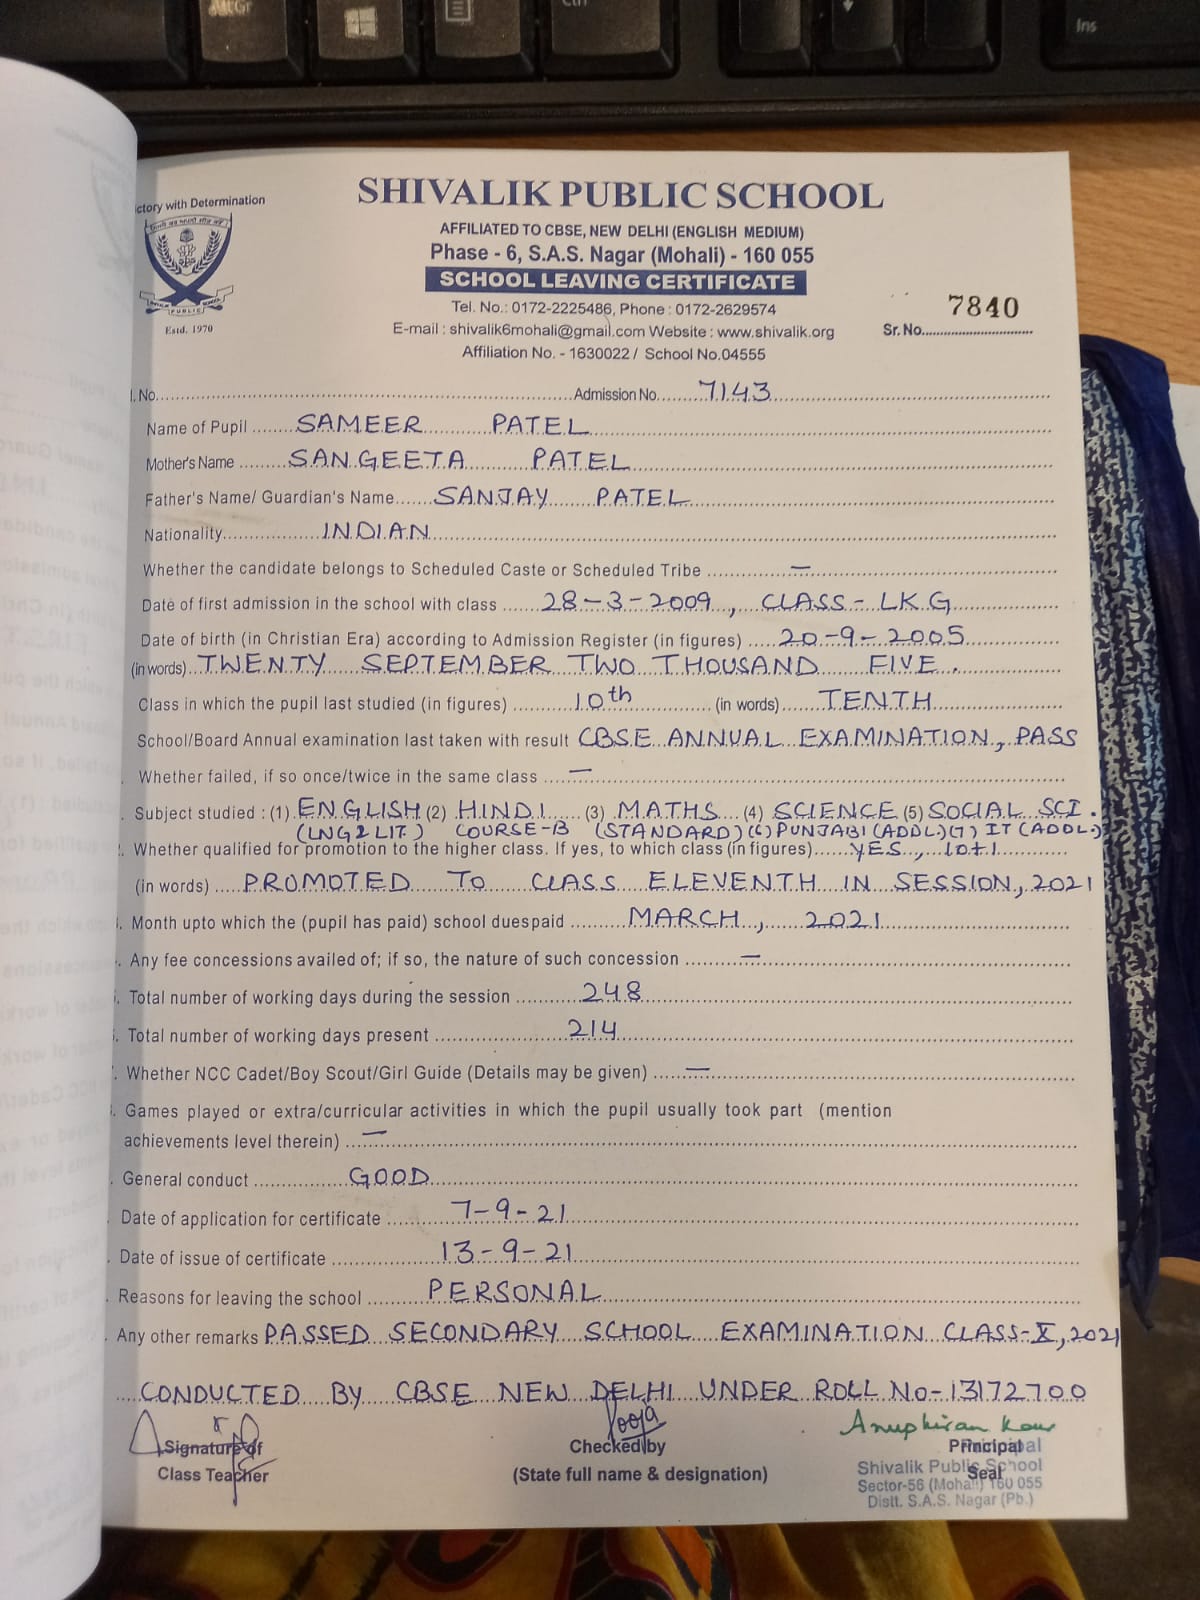 AltGr
Ctrl
Ins
ctory with Determination
SHIVALIK PUBLIC SCHOOL
AFFILIATED TO CBSE, NEW DELHI (ENGLISH MEDIUM)
Phase - 6, S.A.S. Nagar (Mohali) - 160 055
SCHOOL LEAVING CERTIFICATE
Tel. No.: 0172-2225486, Phone : 0172-2629574
E-mail : shivalik6mohali@gmail.com Website : www.shivalik.org
Affiliation No. - 1630022 / School No.04555
PUBLIC
Estd. 1970
7840
Sr. No.
l. No. Admission No. 7143
Name of Pupil SAMEER PATEL
Mother's Name SANGEETA PATEL
Father's Name/ Guardian's Name SANJAY PATEL
Nationality INDIAN
Whether the candidate belongs to Scheduled Caste or Scheduled Tribe —
Date of first admission in the school with class 28-3-2009, CLASS- LKG
Date of birth (in Christian Era) according to Admission Register (in figures) 20-9-2005
(in words) TWENTY SEPTEMBER TWO THOUSAND FIVE.
Class in which the pupil last studied (in figures) 10th (in words) TENTH
School/Board Annual examination last taken with result CBSE ANNUAL EXAMINATION, PASS
Whether failed, if so once/twice in the same class —
Subject studied : (1) ENGLISH (2) HINDI (3) MATHS (4) SCIENCE (5) SOCIAL SCI.
(LNG & LIT) COURSE-B (STANDARD) (6) PUNJABI (ADDL.) (7) IT (ADDL.)
Whether qualified for promotion to the higher class. If yes, to which class (in figures) YES, 10+1
(in words) PROMOTED TO CLASS ELEVENTH IN SESSION, 2021
Month upto which the (pupil has paid) school duespaid MARCH, 2021
Any fee concessions availed of; if so, the nature of such concession —
Total number of working days during the session 248
Total number of working days present 214
Whether NCC Cadet/Boy Scout/Girl Guide (Details may be given) —
Games played or extra/curricular activities in which the pupil usually took part (mention
achievements level therein) —
General conduct GOOD
Date of application for certificate 7-9-21
Date of issue of certificate 13-9-21
Reasons for leaving the school PERSONAL
Any other remarks PASSED SECONDARY SCHOOL EXAMINATION CLASS-X, 2021
CONDUCTED BY CBSE NEW DELHI UNDER ROLL No-13172700
Signature of
Class Teacher
Pooja
Checked by
(State full name & designation)
Anupkiran Kaur
Principal
Seal
Principal
Shivalik Public School
Sector-56 (Mohali) 160 055
Distt. S.A.S. Nagar (Pb.)